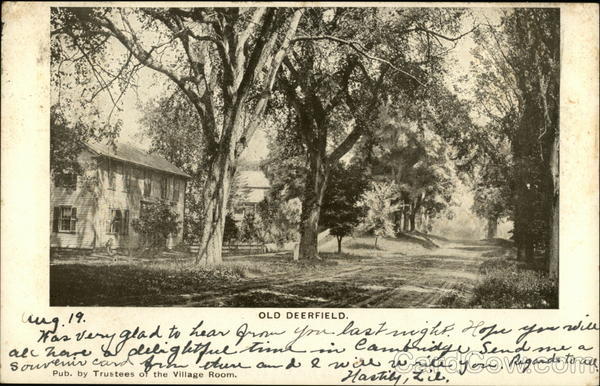 OLD DEERFIELD.
Aug. 19.
Was very glad to hear from you last night. Hope you will
all have a delightful time in Cambridge. Send me a
souvenir card from there and I will write you. Regards to all
Pub. by Trustees of the Village Room.
Hastily,
CardCow.com